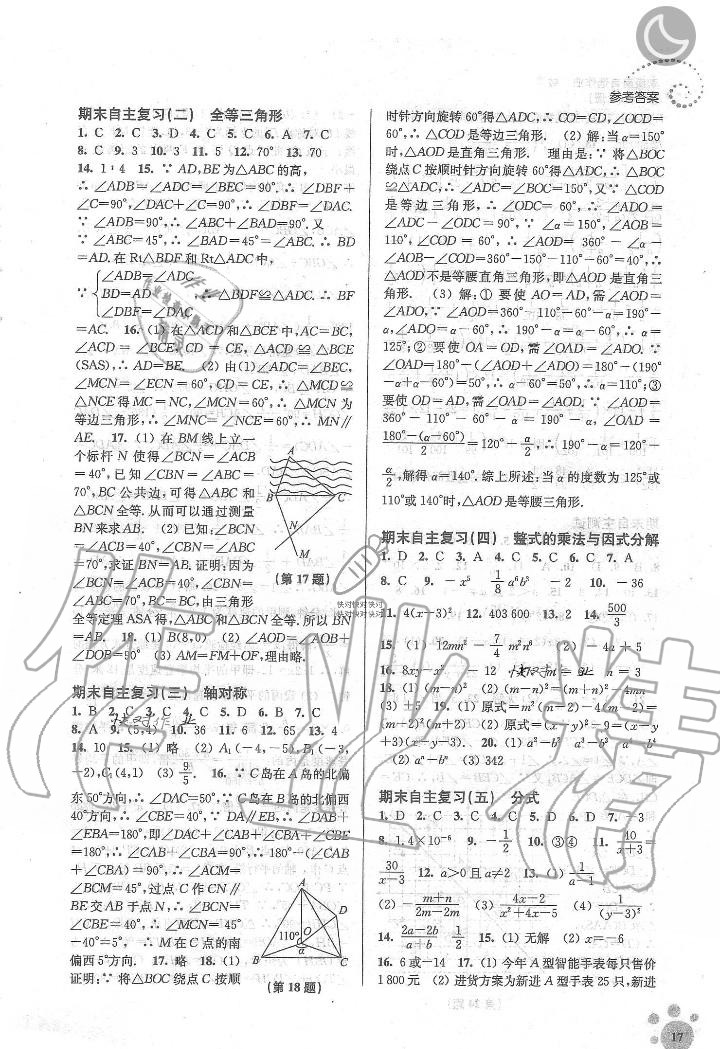 参考答案
期末自主复习(二) 全等三角形
1. C 2. C 3. D 4. C 5. C 6. A 7. C
8. C 9. 3 10. 3 11. 5 12. 70° 13. 70
14. 1∶4 15. ∵ AD,BE为△ABC的高,
∴ ∠ADB=∠ADC=∠BEC=90°.∴ ∠DBF+
∠C=90°,∠DAC+∠C=90°.∴ ∠DBF=∠DAC.
∵ ∠ADB=90°,∴ ∠ABC+∠BAD=90°.又
∵ ∠ABC=45°,∴ ∠BAD=45°=∠ABC.∴ BD
=AD.在Rt△BDF和Rt△ADC中,
∠BDF=∠ADC,
∵ BD=AD, ∴ △BDF≌△ADC.∴ BF
∠DBF=∠DAC,
=AC. 16. (1) 在△ACD和△BCE中,AC=BC,
∠ACD=∠BCE,CD=CE,∴ △ACD≌△BCE
(SAS),∴ AD=BE. (2) 由(1)∠ADC=∠BEC,
∠MCN=∠ECN=60°,CD=CE,∴ △MCD≌
△NCE得MC=NC,∠MCN=60°,∴ △MCN为
等边三角形,∴ ∠MNC=∠NCE=60°,∴ MN∥
AE. 17. (1) 在BM线上立一
个标杆N使得∠BCN=∠ACB
=40°,已知∠CBN=∠ABC=
70°,BC公共边,可得△ABC和
△BCN全等.从而可以通过测量
BN来求AB. (2) 已知:∠BCN
=∠ACB=40°,∠CBN=∠ABC
=70°,求证BN=AB. 证明:因为
∠BCN=∠ACB=40°,∠CBN=
∠ABC=70°,BC=BC,由三角形
全等定理ASA得,△ABC和△BCN全等.所以BN
=AB. 18. (1) B(8,0) (2) ∠AOD=∠AOB+
∠DOB=90° (3) AM=FM+OF,理由略.
A
B
C
N
M
(第17题)
期末自主复习(三) 轴对称
1. B 2. C 3. C 4. C 5. D 6. B 7. C
8. A 9. (5,4) 10. 36 11. 6 12. 65 13. 4
14. 10 15. (1) 略 (2) A₁(-4,-5),B₁(-3,
-2),C₁(4,1) (3) 9/5. 16. ∵ C岛在A岛的北偏
东50°方向,∴ ∠DAC=50°,∵ C岛在B岛的北偏西
40°方向,∴ ∠CBE=40°.∵ DA∥EB,∴ ∠DAB+
∠EBA=180°,即∠DAC+∠CAB+∠CBA+∠CBE
=180°,∴ ∠CAB+∠CBA=90°,∴ 180°-(∠CAB
+∠CBA)=90°,∴ ∠ACM=
∠BCM=45°,过点C作CN∥
BE交AB于点N,∴ ∠BCN=
∠CBE=40°,∴ ∠MCN=45°
-40°=5°. ∴ M在C点的南
偏西5°方向. 17. 略 18. (1)
证明:∵ 将△BOC绕点C按顺
A
D
110°
O
α
B
C
(第18题)
时针方向旋转60°得△ADC,∴ CO=CD,∠OCD=
60°,∴ △COD是等边三角形. (2) 解:当α=150°
时,△AOD是直角三角形. 理由是:∵ 将△BOC
绕点C按顺时针方向旋转60°得△ADC,∴ △BOC
≌△ADC,∴ ∠ADC=∠BOC=150°,又∵ △COD
是等边三角形,∴ ∠ODC=60°,∴ ∠ADO=
∠ADC-∠ODC=90°,∵ ∠α=150°,∠AOB=
110°,∠COD=60°,∴ ∠AOD=360°-∠α-
∠AOB-∠COD=360°-150°-110°-60°=40°,∴
△AOD不是等腰直角三角形,即△AOD是直角三
角形. (3) 解:① 要使AO=AD,需∠AOD=
∠ADO,∵ ∠AOD=360°-110°-60°-α=190°-
α,∠ADO=α-60°,∴ 190°-α=α-60°,∴ α=
125°;② 要使OA=OD,需∠OAD=∠ADO.∵
∠OAD=180°-(∠AOD+∠ADO)=180°-(190°
-α+α-60°)=50°,∴ α-60°=50°,∴ α=110°;③
要使OD=AD,需∠OAD=∠AOD.∵ ∠AOD=
360°-110°-60°-α=190°-α,∠OAD=
180°-(α-60°)/2=120°-α/2,∴ 190°-α=120°-
α/2,解得α=140°.综上所述:当α的度数为125°或
110°或140°时,△AOD是等腰三角形.
期末自主复习(四) 整式的乘法与因式分解
1. D 2. C 3. A 4. C 5. C 6. C 7. A
8. C 9. -x⁵ 1/8a⁶b³ -2 10. -36
11. 4(x-3)² 12. 403 600 13. 2 14. 500/3
15. (1) 12mn²-7/4m²n⁶ (2) -4t+5
16. 8xy-x² -12 n=3
18. (1) (m-n)² (2) (m-n)²=(m+n)²-4mn
(3) ±5 19. (1) 原式=m²(m-2)-4(m-2)=
(m-2)²(m+2) (2) 原式=(x-y)²-9=(x-y
+3)(x-y-3). 20. (1) a²-b² a³-b³ a⁴-b⁴
(2) (3) 342
期末自主复习(五) 分式
1. D 2. C 3. C 4. C 5. D 6. D 7. -3
8. 1.4×10⁻⁶ 9. -1/2 10. ③④ 11. 10/(x+3)=
30/(x-3) 12. a>0且a≠2 13. (1) 1/(a-1)
(2) -(m+n)/(2m-2m) (3) (4x-2)/(x²+4x-5) (4) 1/(y-3)²
14. (2a-2b)/(a+b) 1/2 15. (1) 无解 (2) x=-6
16. 6或-14 17. (1) 今年A型智能手表每只售价
1 800元 (2) 进货方案为新进A型手表25只,新进
快对快对快对
快对快对快对
快对作业
作业精
17